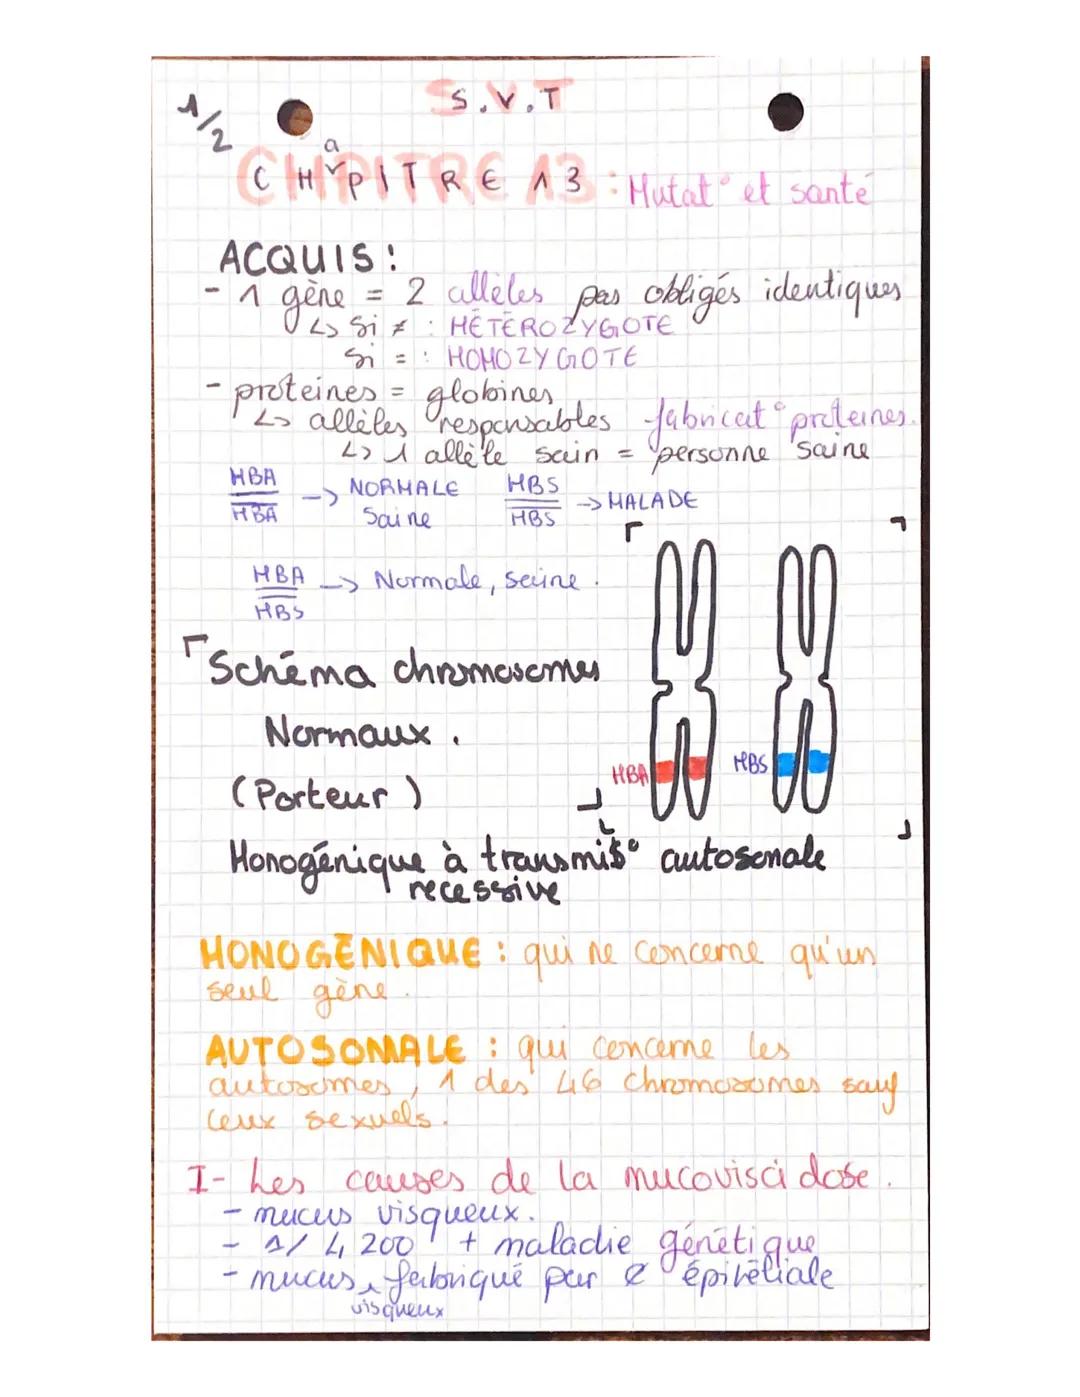 1/2
S.V.T
CHaPITRE 13 : Mutat° et santé
ACQUIS :
- 1 gène = 2 allèles pas obligés identiques
↳ Si ≠ : HÉTÉROZYGOTE
Si = : HOMOZYGOTE
- proteines = globines
↳ allèles responsables fabricat° proteines.
↳ 1 allèle sain = personne saine
HBA/HBA -> NORMALE Saine HBS/HBS -> MALADE
HBA/HBS -> Normale, saine.
Schéma chromosomes
Normaux.
(Porteur)
HBA HBS
Monogénique à transmis° autosomale
recessive
MONOGÉNIQUE : qui ne concerne qu'un
seul gène.
AUTOSOMALE : qui concerne les
autosomes, 1 des 46 chromosomes sauf
ceux sexuels.
I- Les causes de la mucoviscidose.
- mucus visqueux.
- 1/4 200 + maladie génétique
- mucus visqueux fabriqué par épithéliale